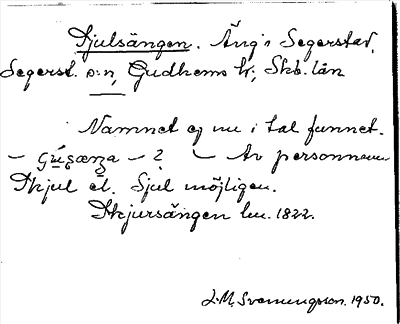 Skjulsängen. Äng i Segerstad,
Segerst. s:n, Gudhems hd, Skb. län
Namnet ej nu i tal funnet.
— ? Av personnamn
Skjul el. Sjul möjligen.
Skjursängen lm. 1822.
L. M. Svenungsson. 1950.